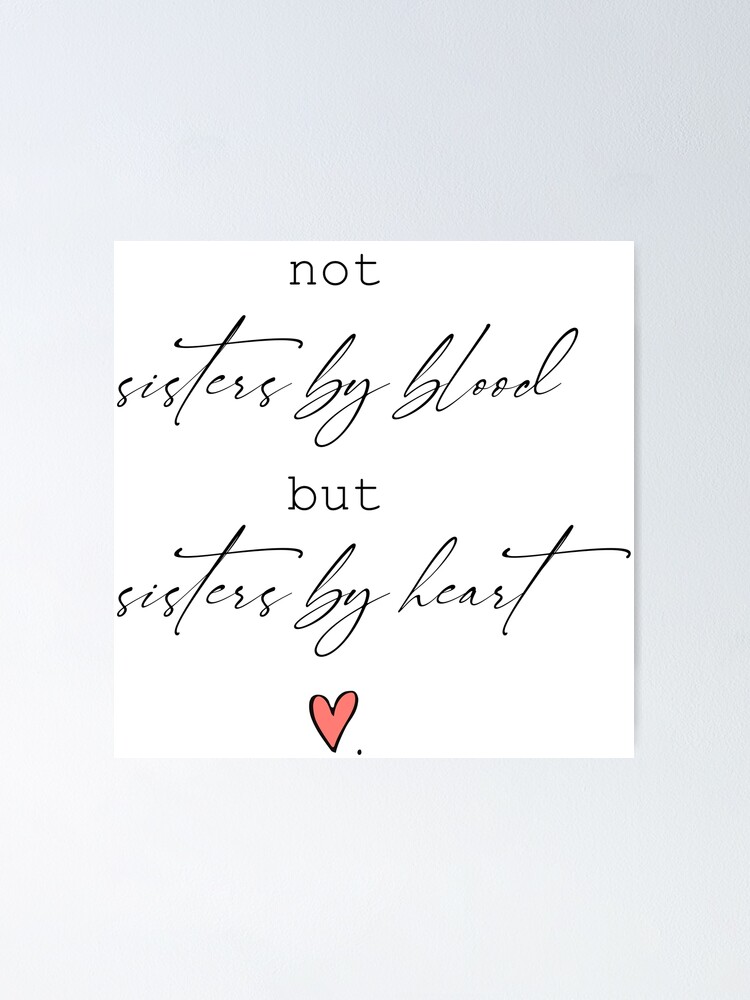 not
sisters by blood
but
sisters by heart
.